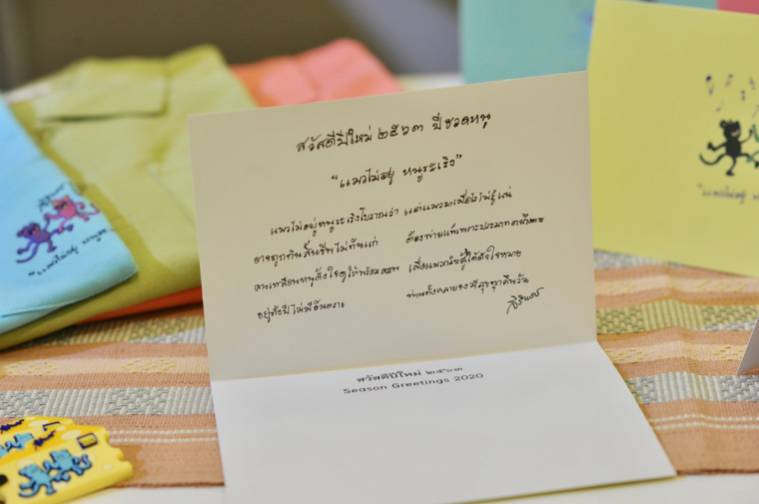 สวัสดีปีใหม่ ๒๕๖๓ ปีชวดหนู
“แมวไม่อยู่ หนูระเริง”
แมวไม่อยู่หนูระเริงโบราณว่า แต่แมวมาเมื่อใดไม่รู้แน่
อาจถูกกินสิ้นชีพไม่ทันแก่ ต้องพ่ายแพ้เพราะประมาท
จงเตือนหนูตั้งใจดูให้รอบคอบ เพื่อ
อยู่ทั้งปีไม่มีอันตราย ท่านทั้งหลายจงมีสุขทุกคืนวัน
สิรินธร
สวัสดีปีใหม่ ๒๕๖๓
Season Greetings 2020
“แมวไม่อยู่ หนูระ
“แมวไม่อยู่